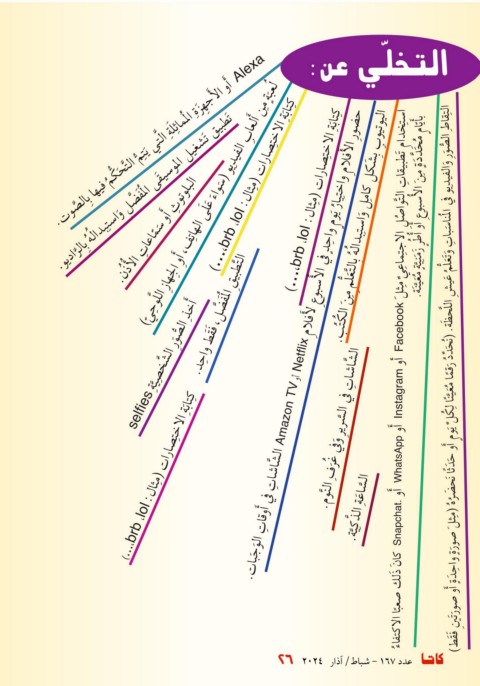 التخلّي عن :
Alexa أو الأجهزة المماثلة التي يتم التحكم فيها بالصوت.
تطبيق تشغيل الموسيقى المفضل واستبداله بالراديو.
البلوتوث أو سماعات الأذن.
لعبة من ألعاب الفيديو (سواء على الهاتف، أو الجهاز اللوحي)
كتابة الاختصارات (مثال: brb ،lol....)
التطبيق المفضل، فقط واحد.
أخذ الصور الشخصية selfies
كتابة الاختصارات (مثال: brb ،lol....)
كتابة الاختصارات (مثال: brb ،lol....)
حضور الأفلام واختيار يوم واحد في الأسبوع لأفلام Netflix أو Amazon TV
الشاشات في أوقات الوجبات.
اليوتيوب بشكل كامل واستبداله بالتعلم من الكتب.
الشاشات في السرير وفي غرف النوم.
الساعة الذكية.
استخدام تطبيقات التواصل الاجتماعي مثل Facebook أو Instagram أو WhatsApp أو Snapchat. كان ذلك صعبا الاكتفاء
بأيام محددة من الأسبوع أو أطر زمنية معينة.
التقاط الصور والفيديو في المناسبات وتعلم عيش اللحظة. (نحدد رقما معينا لكل يوم أو حدثا نحضره (مثل صورة واحدة أو صورتين فقط)
كاحا عدد ١٦٧ - شباط/ آذار ٢٠٢٤ ٢٦